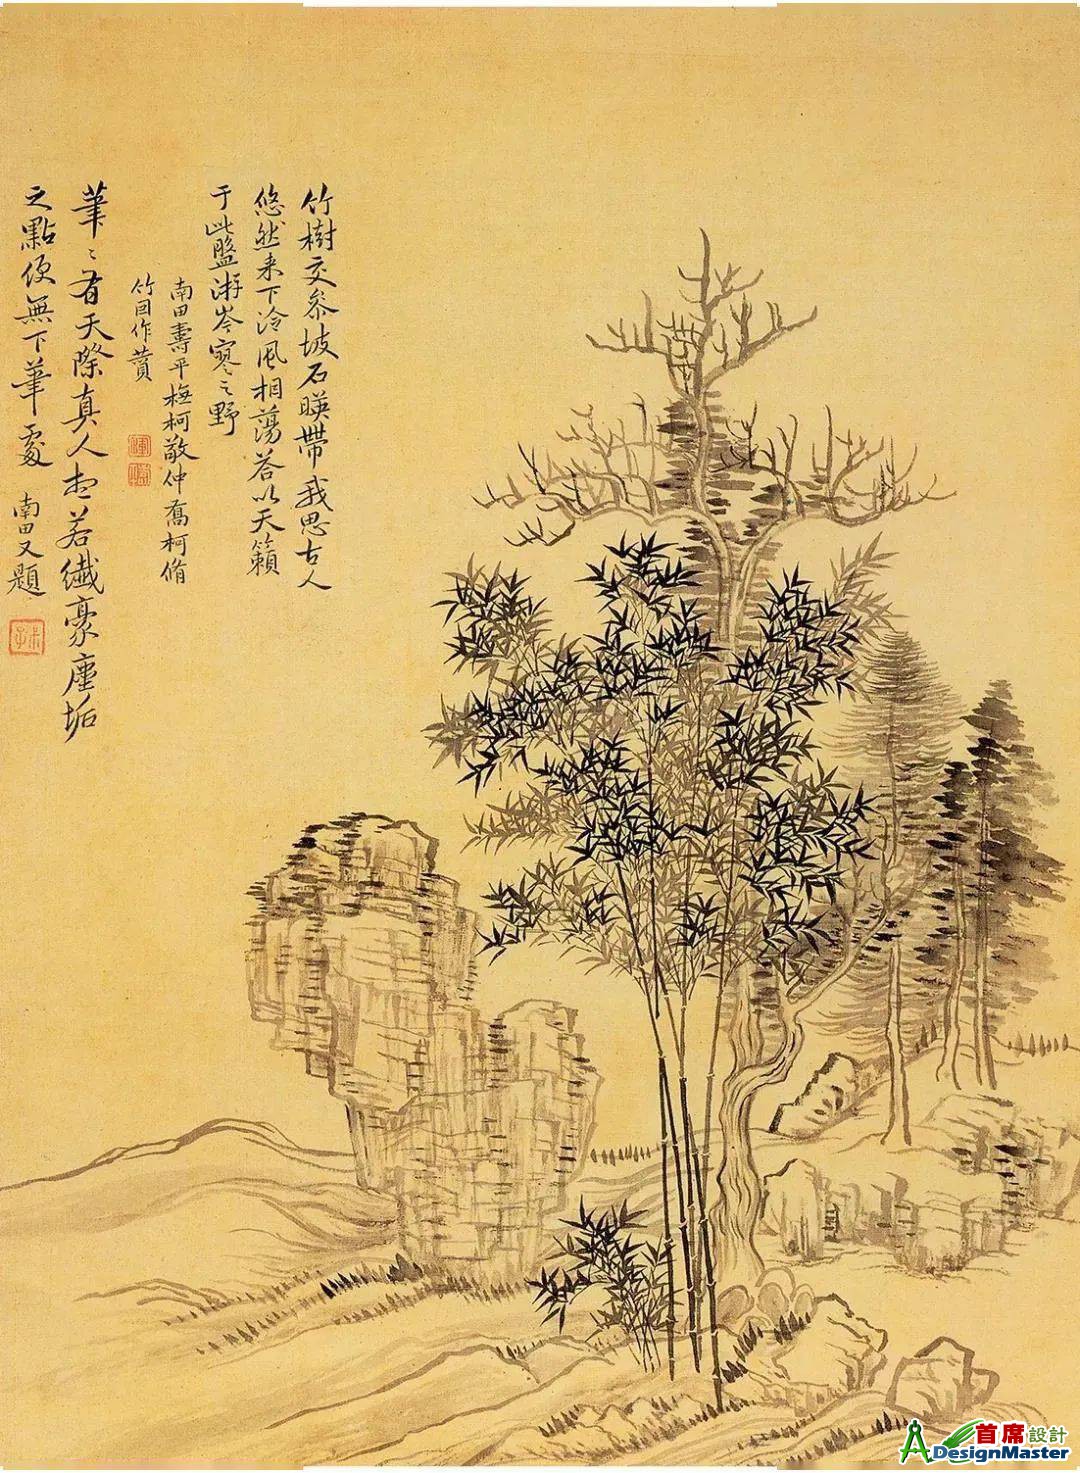 竹樹交參坡石暎帶我思古人
悠然来下泠風相蕩荅以天籟
于此盤游岑寥之野
南田壽平橅柯敬仲喬柯脩
竹因作贊
筆〻有天際真人想若纖豪塵垢
之點便無下筆處
南田又題
首席設計
ADesignMaster